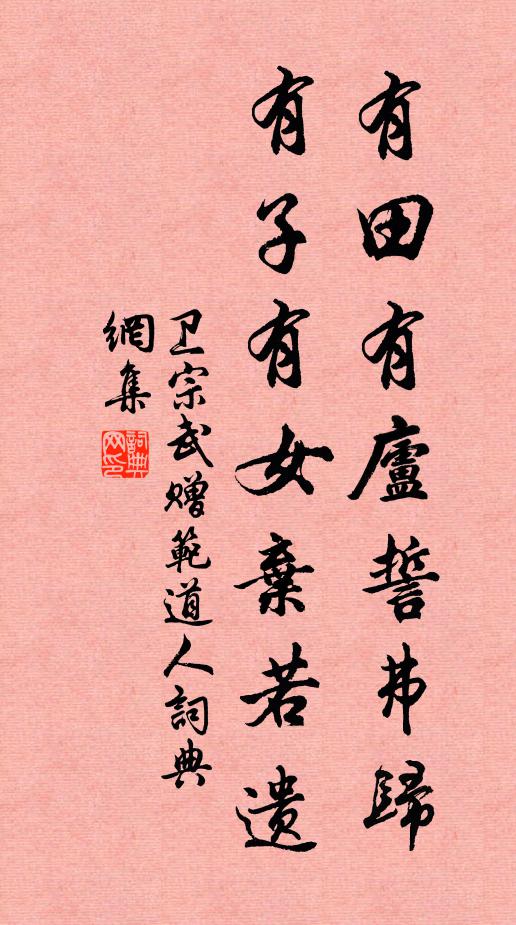 有田有廬誓弗歸
有子有女棄若遗
卫宗武赠範道人詞典
網集
詞典
网印